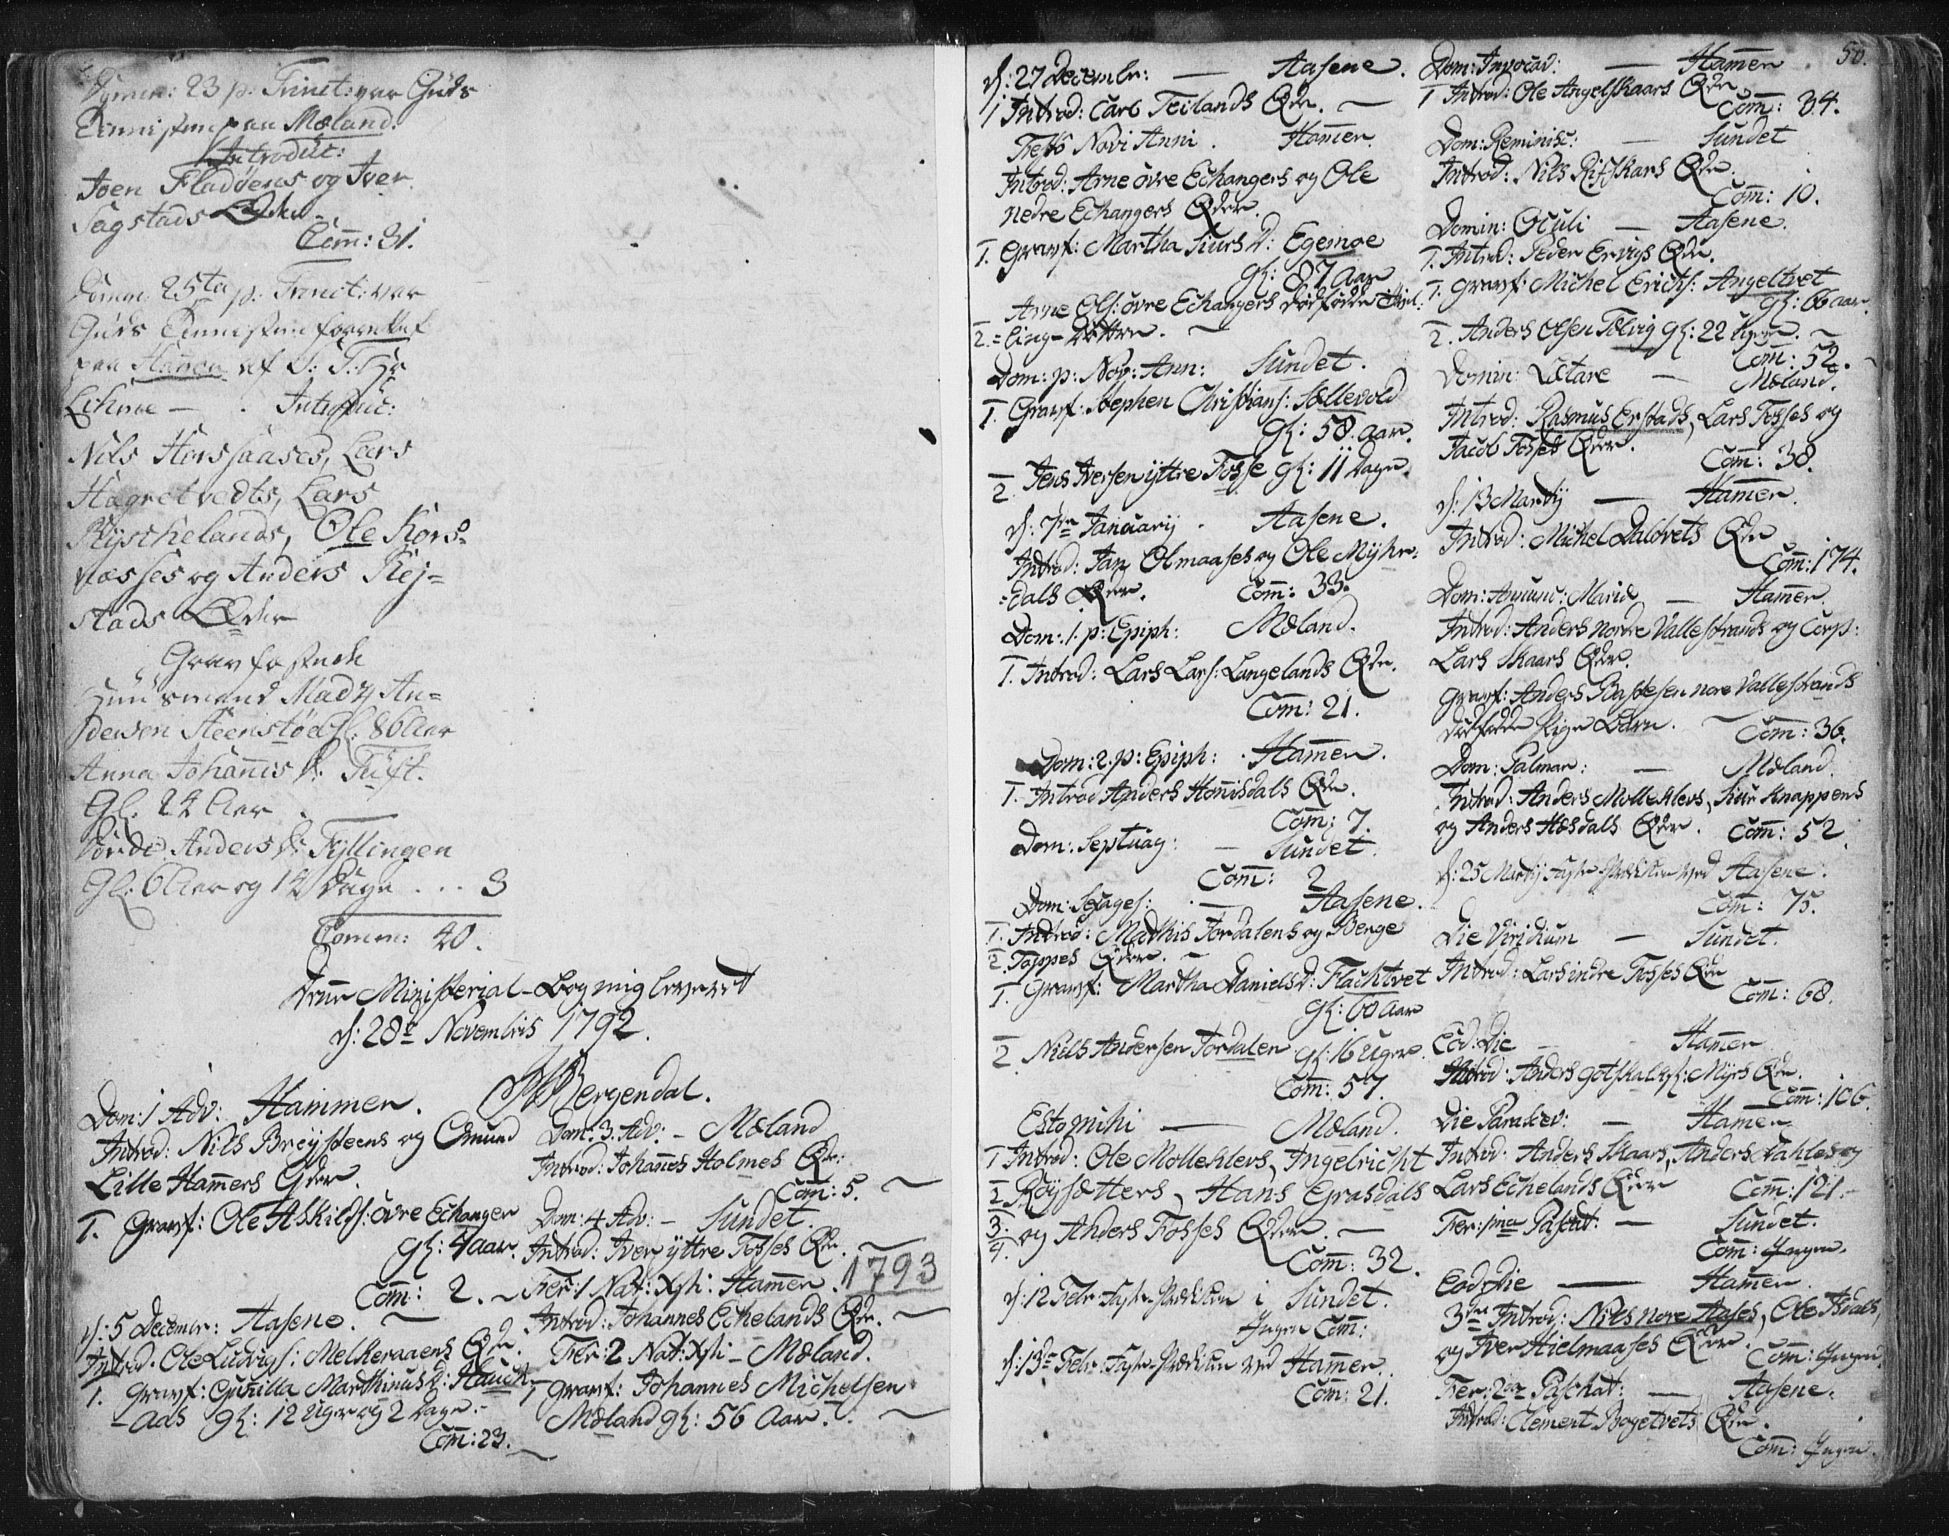 Domin: 23 p. Trinit: var Guds
Tienisten paa Mæland.
Introduc:
Joen Fladøens og Iver
Sagstads Qder.
Com: 31.
Domin: 25ta p: Trinit: var
Guds Tienisten forrettet
paa Hamen af S: T: Hr
Lihme — Introduc:
Nils Horssaases, Lars
Hagretvedts, Lars
Ryschelands, Ole Kors-
næsses og Anders Rej-
stads Qder
Gravfæstede
Huusmand Mads An-
dersen Steenstøe Gl. 86 Aar
Anna Johannis D: Tuft.
Gl. 24 Aar
Anders D: Fyllingen
Gl: 6 Aar og 14 Dage . . . 3
Comm: 40.
Denne Ministerial-bog mig leveret
d: 28de Novembris 1792.
Bergendal.
Dom: 1 Adv: Hammen.
Introd: Nils Breysteens og Omund
Lille Hamers Qder.
1. Gravf: Ole Askilds: øvre Echanger
gl: 4 aar.
Com: 2.
d: 5 Decembr: Aasene.
Introd. Ole Ludvigs: Melkeraaens Qde.
1. Gravf: Gunilla Marthinus D: Hauch-
-aas gl: 12 Uger og 2 Dage.
Com: 23.
Dom: 3. Adv: - Mæland
Introd: Johannes Holmes Qde:
Com: 5.
Dom: 4 Adv: - Sundet.
Introd: Iver yttre Fosses Qde.
1793
Fer: 1 Nat: Xsti: Hamen.
Introd: Johannes Echelands Qde.
Fer: 2 Nat: Xsti - Mæland.
1 Gravf: Johannes Michelsen
Mæland gl: 56 Aar.
d: 27 Decembr: — Aasene.
1 Introd: Carl Teilands Qde.
Festo Novi Anni. Hamer.
Introd: Arne øvre Echangers og Ole
nedre Echangers Qder.
1. Gravf: Martha Siurs D: Egemoe
gl: 87 Aar
Arne Ols: øvre Echangers dødfødde Tvil-
2. =ling-Døttre.
Dom: p: Nov: Ann: Sundet.
1. Gravf: Stephen Christians: Sollevold
gl: 58. aar.
2. Jens Iversen yttre Fosse gl: 11 Dage.
d: 7de Januarij. Aasene.
Introd: Jan Olmaases og Ole Myhre-
=dals Qder. Com: 33.
Dom: 1. p: Epiph: Mæland.
1. Introd: Lars Lars: Langelands Qde.
Com: 21.
Dom: 2. p: Epiph: Hamen.
1. Introd Anders Honisdals Qde.
Com: 7.
Dom: Septuag: — Sundet.
Com: 2
Dom: Sexages: — Aasene.
1. Introd: Mathis Fordalens og Berge
2. Toppes Qder.
1. Gravf: Martha Daniels D: Flachtvet
gl: 60 Aar
2. Niels Andersen Fordalen gl: 16 Uger.
Com: 57.
Estomihi — Mæland.
1 Introd: Ole Molleklevs, Ingelricht
2 Røysætters, Hans Grasdals
3. og Anders Fosses Qder.
4.
Com: 32.
d: 12 Febr. Faste-Prædiken i Sundet.
Ingen Com:
d: 13de Febr. Faste-Prædiken ved Hamer.
Com: 21.
50.
Dom: Invocav: — Hamen.
1 Introd: Ole Angelskaars Qde.
Com: 34.
Dom: Reminisc: — Sundet
Introd: Nils Rifskars Qde.
Com: 10.
Domin: Oculi — Aasene.
1. Introd: Peder Ervigs Qde.
1. Gravf: Michel Erichs: Angeltvet
gl: 66 aar.
2. Anders Olsen Tolvig gl: 22 Uger.
Com: 52.
Domin: Lætare — Mæland.
Introd: Rasmus Erstads, Lars Fosses og
Jacob Fosses Qder.
Com: 38.
d: 13 Martij — Hamer.
Introd: Michel Daltvets Qde
Com: 174.
Dom: Anunc: Mariæ — Hamer.
Introd: Anders Nordre Vallestrands og Corp:
Lars Skaars Qder.
Gravf: Anders Bastesen nore Vallestrands
dødfødde Pige Barn. Com: 36.
Dom: Palmar: — Mæland.
Introd: Anders Molleklevs, Siur Knappens
og Anders Hæsdals Qder. Com: 52
d: 25 Martij Faste-Prædiken ved Aasene.
Com: 75.
Die Viridium — Sundet.
Introd: Lars indre Fosses Qde
Com: 68.
Eod: Die — Hamer
Introd: Anders Gotskalchs: Myrs Qde.
Com: 106.
Die Parascev: — Hamer
Introd: Anders Skaars, Anders Dahles og
Lars Echelands Qder Com: 121.
Fer: 1ma Paschat: — Sundet.
Com: Ingen.
Eod: Die — Hamer.
3de Introd: Nils nore Aases, Ole Isdals,
og Iver Hielmaases Qder.
Com: Ingen.
Fer: 2da Paschat: — Aasene.
Introd: Clement Bogetvets Qde.
Com: Ingen.